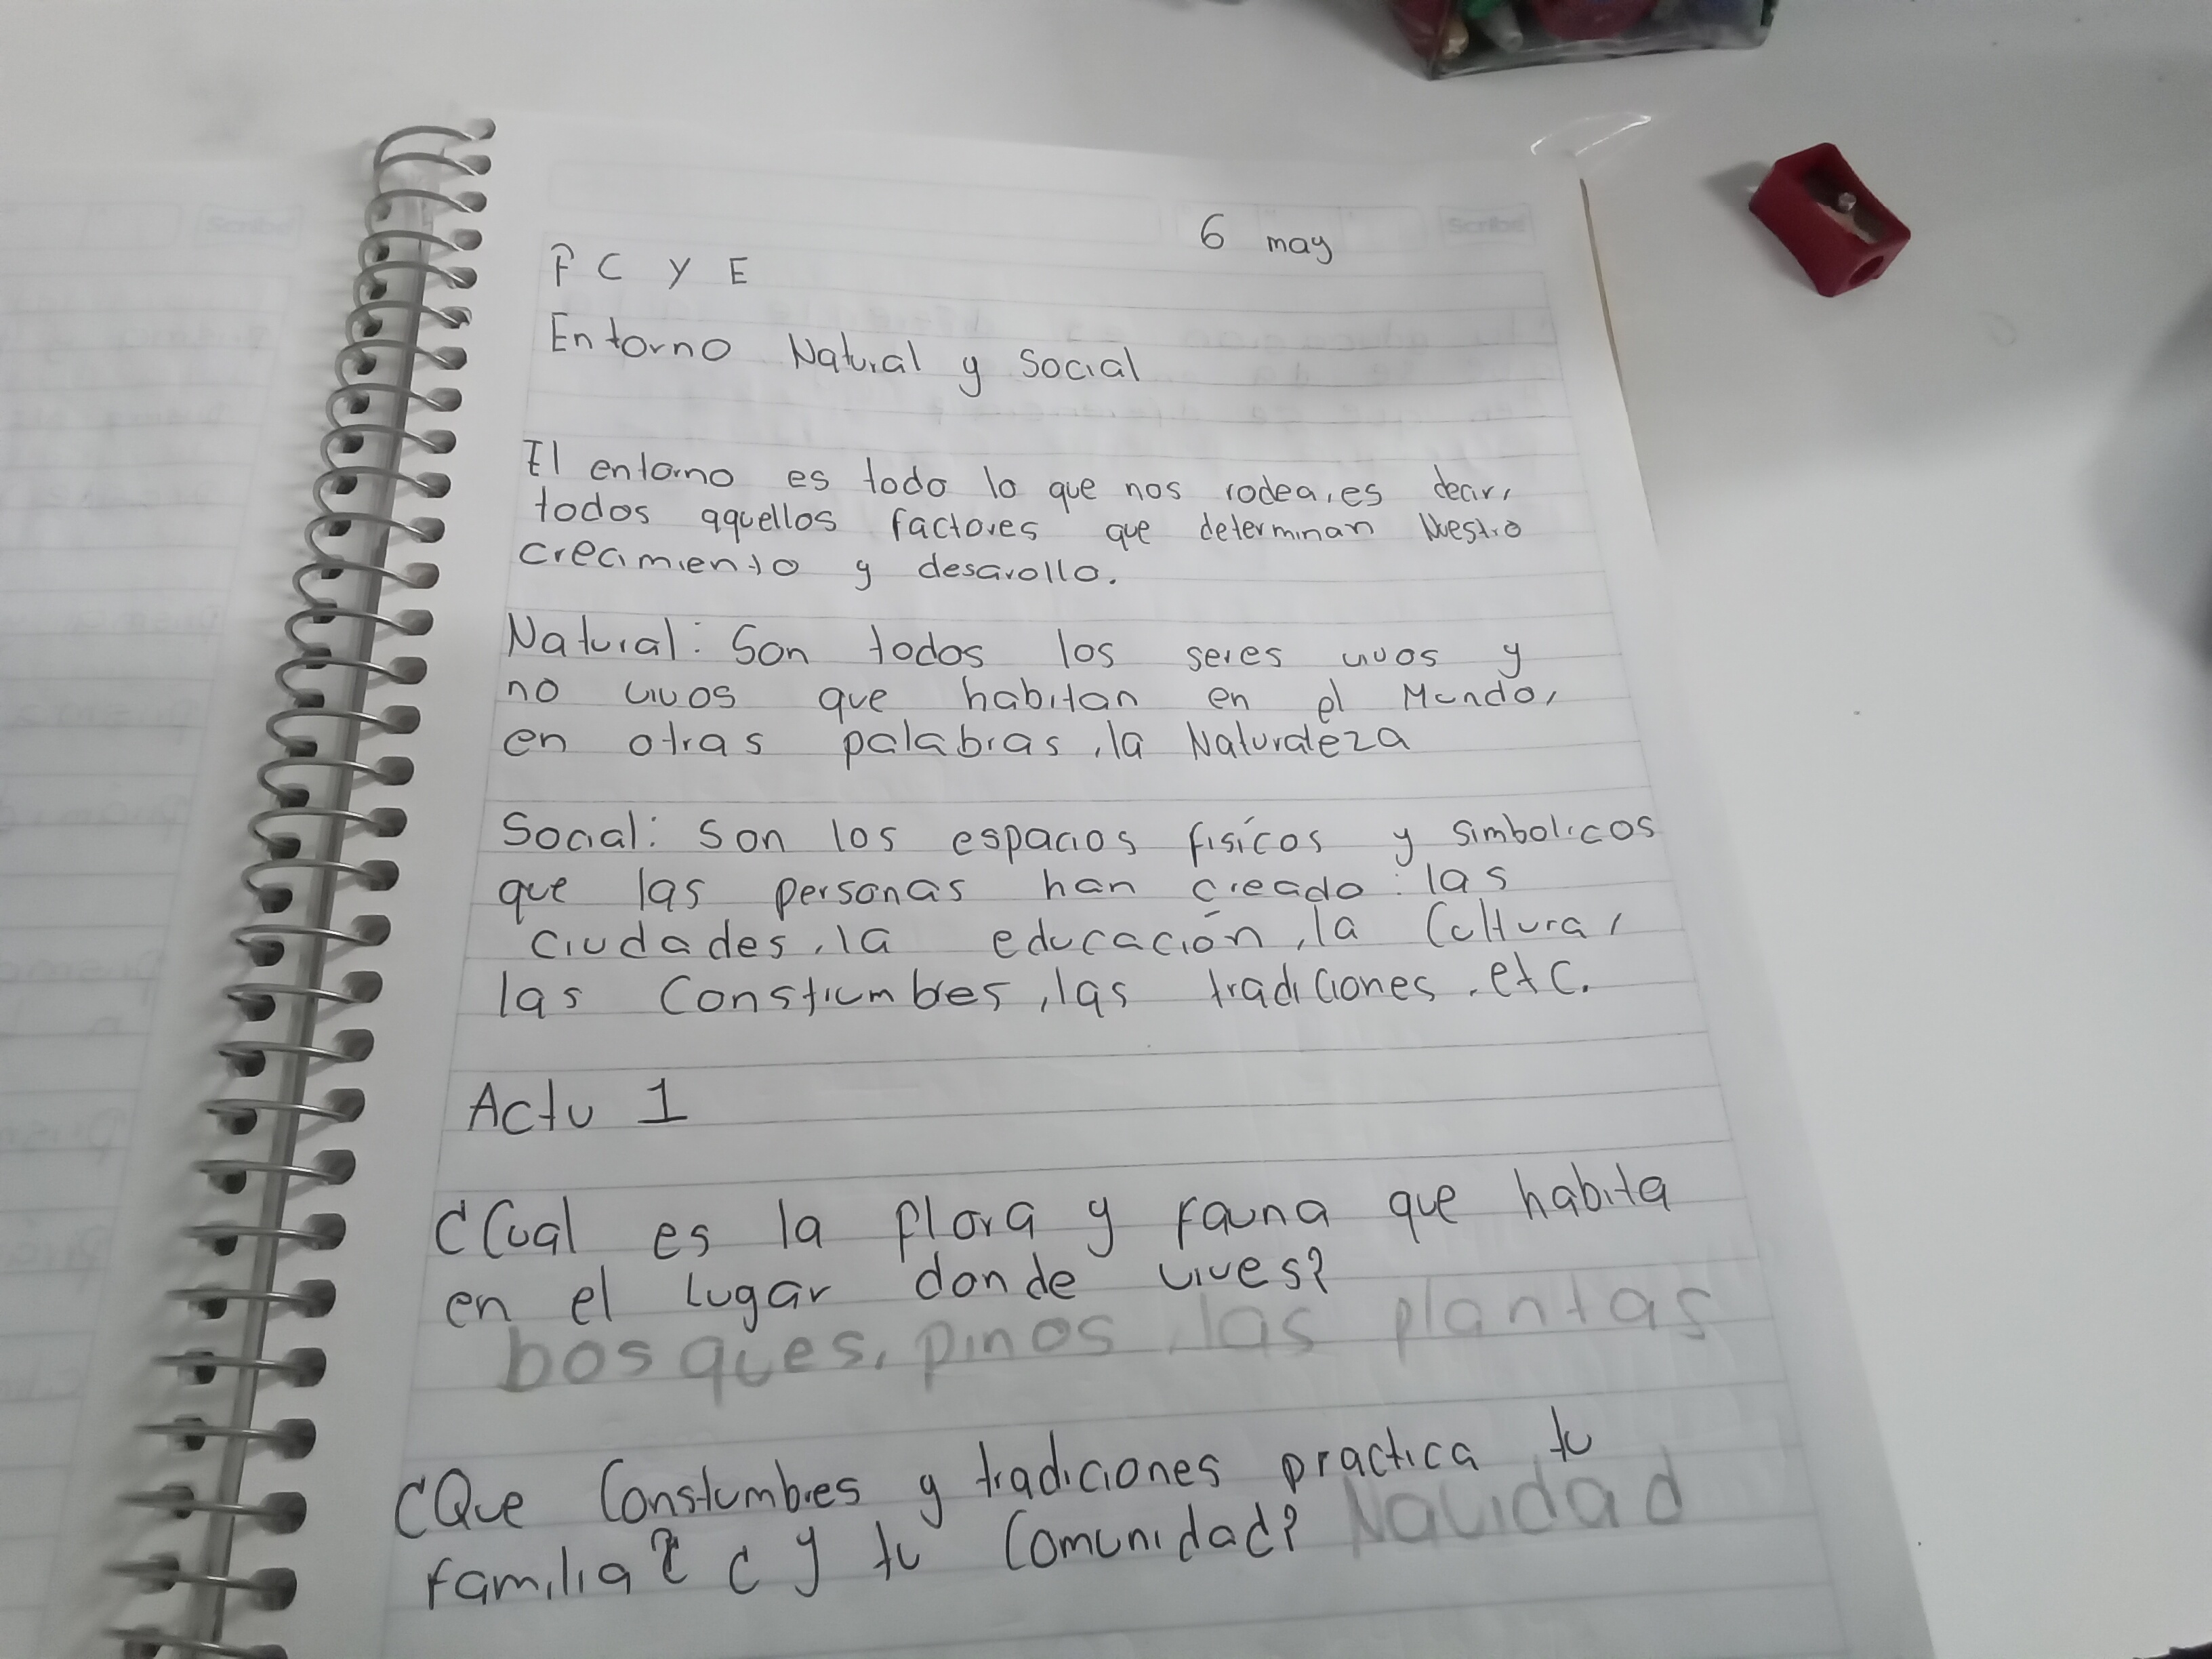 6 may
F C y E
Entorno Natural y Social
El entorno es todo lo que nos rodea, es decir,
todos aquellos factores que determinan Nuestro
crecimiento y desarollo.
Natural: Son todos los seres vivos y
no vivos que habitan en el Mundo,
en otras palabras, la Naturaleza
Social: Son los espacios físicos y simbolicos
que las personas han creado: las
ciudades, la educación, la Cultura,
las Constumbres, las tradiciones, etc.
Activ 1
¿Cual es la flora y fauna que habita
en el lugar donde vives?
bosques, pinos, las plantas
¿Que Constumbres y tradiciones practica tu
familia? ¿y tu Comunidad? Navidad
Scribe
Scribe